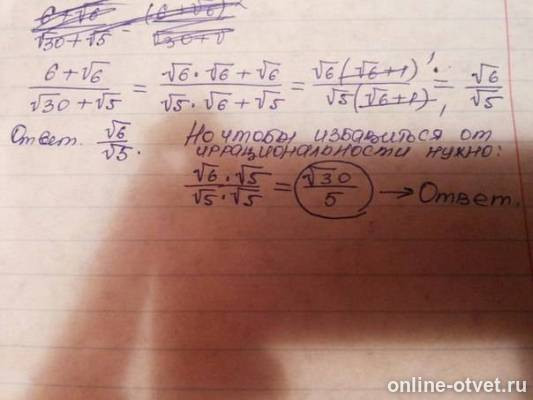 6+√6 / √30+√5 = (6+√6) / √30+√
6+√6 / √30+√5 = √6·√6+√6 / √5·√6+√5 = √6(√6+1) / √5(√6+1) = √6 / √5
Ответ. √6 / √5. Но чтобы избавиться от
иррациональности нужно:
√6·√5 / √5·√5 = √30 / 5 → Ответ.
online-otvet.ru